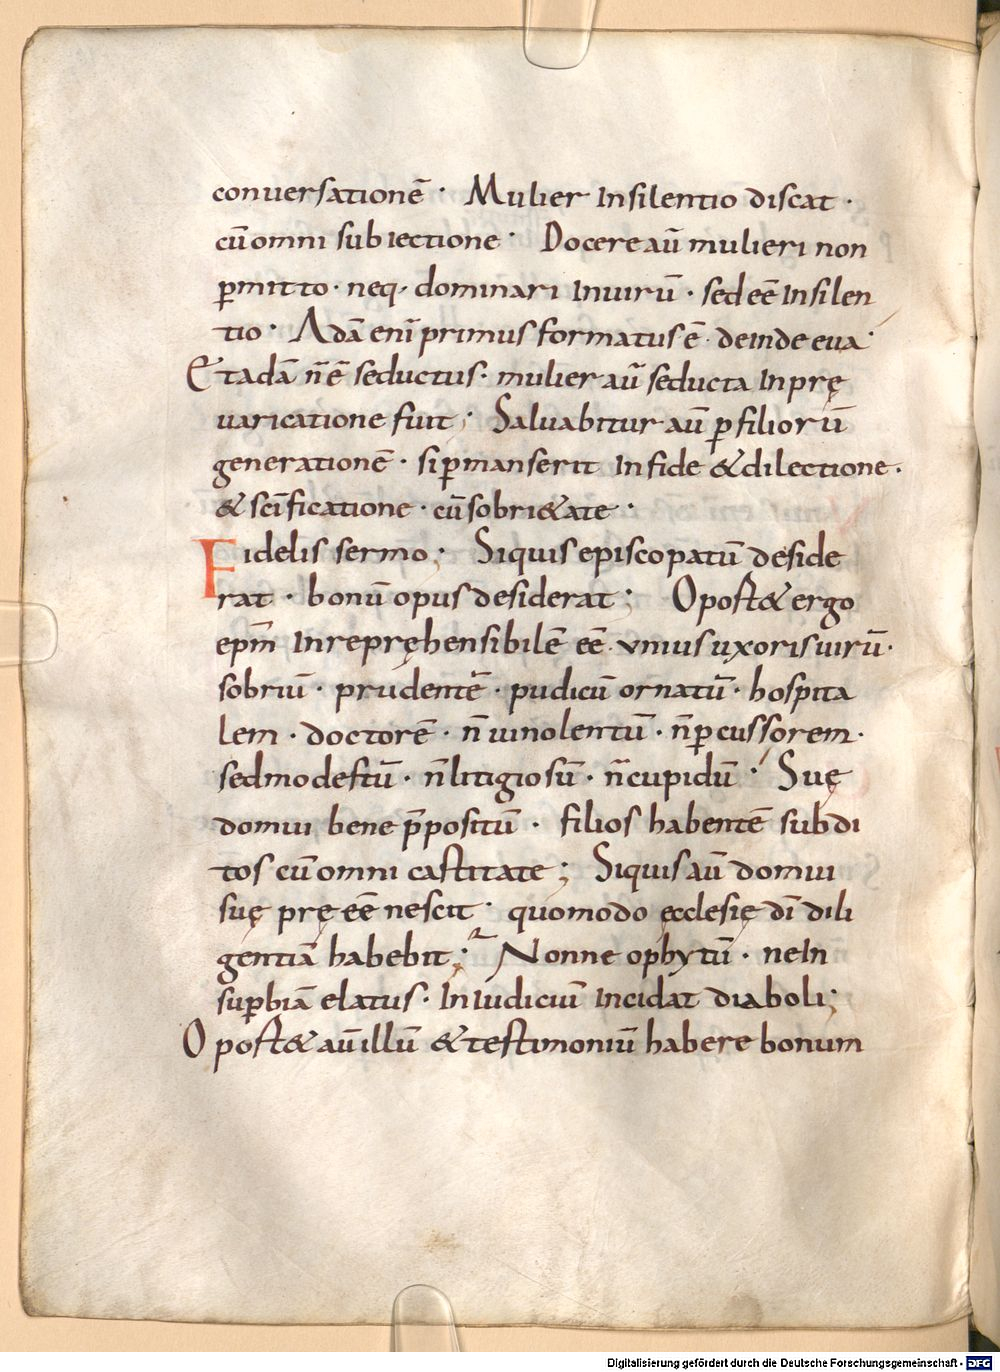 conuersationē · Mulier In silentio discat ·
cū omni subiectione · Docere aū mulieri non
ꝑmitto · neq· dominari In uirū · sed eē In silen
tio · Adā eni primus formatus ē · deinde eua ·
Et adā n̄ ē seductus · mulier aū seducta In prę
uaricatione fuit ; Saluabitur aū ꝑ filiorū
generationē · si ꝑmanserit In fide & dilectione ·
& scīficatione · cū sobri&ate ·
Fidelis sermo ; Siquis episcopatū deside
rat · bonū opus desiderat ; Oport& ergo
epm̄ Inrepręhensibilē eē · unius uxoris uirū ·
sobriū · prudentē · pudicū ornatū · hospita
lem · doctorē · n̄ uinolentū · n̄ ꝑcussorem ·
sed modestū · n̄ litigiosū · n̄ cupidū · Suę
domui bene p̄positū · filios habentē subdi
tos cū omni castitate ; Siquis aū domui
suę pręeē nescit · quomodo ęcclesię dī dili
gentiā habebit ; Non neophytū · ne In
suꝑbiā elatus · In Iudiciū Incidat diaboli ;
Oport& aū illū & testimoniū habere bonum
Digitalisierung gefördert durch die Deutsche Forschungsgemeinschaft - DFG